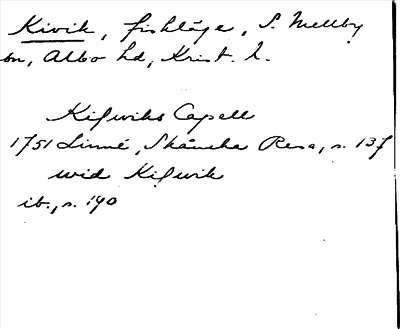 Kivik, fiskläge, S. Mellby
sn, Albo hd, Krist. l.
Kifwiks Capell
1751 Linné, Skånska Resa, s. 137
wid Kifwik
ib., s. 190